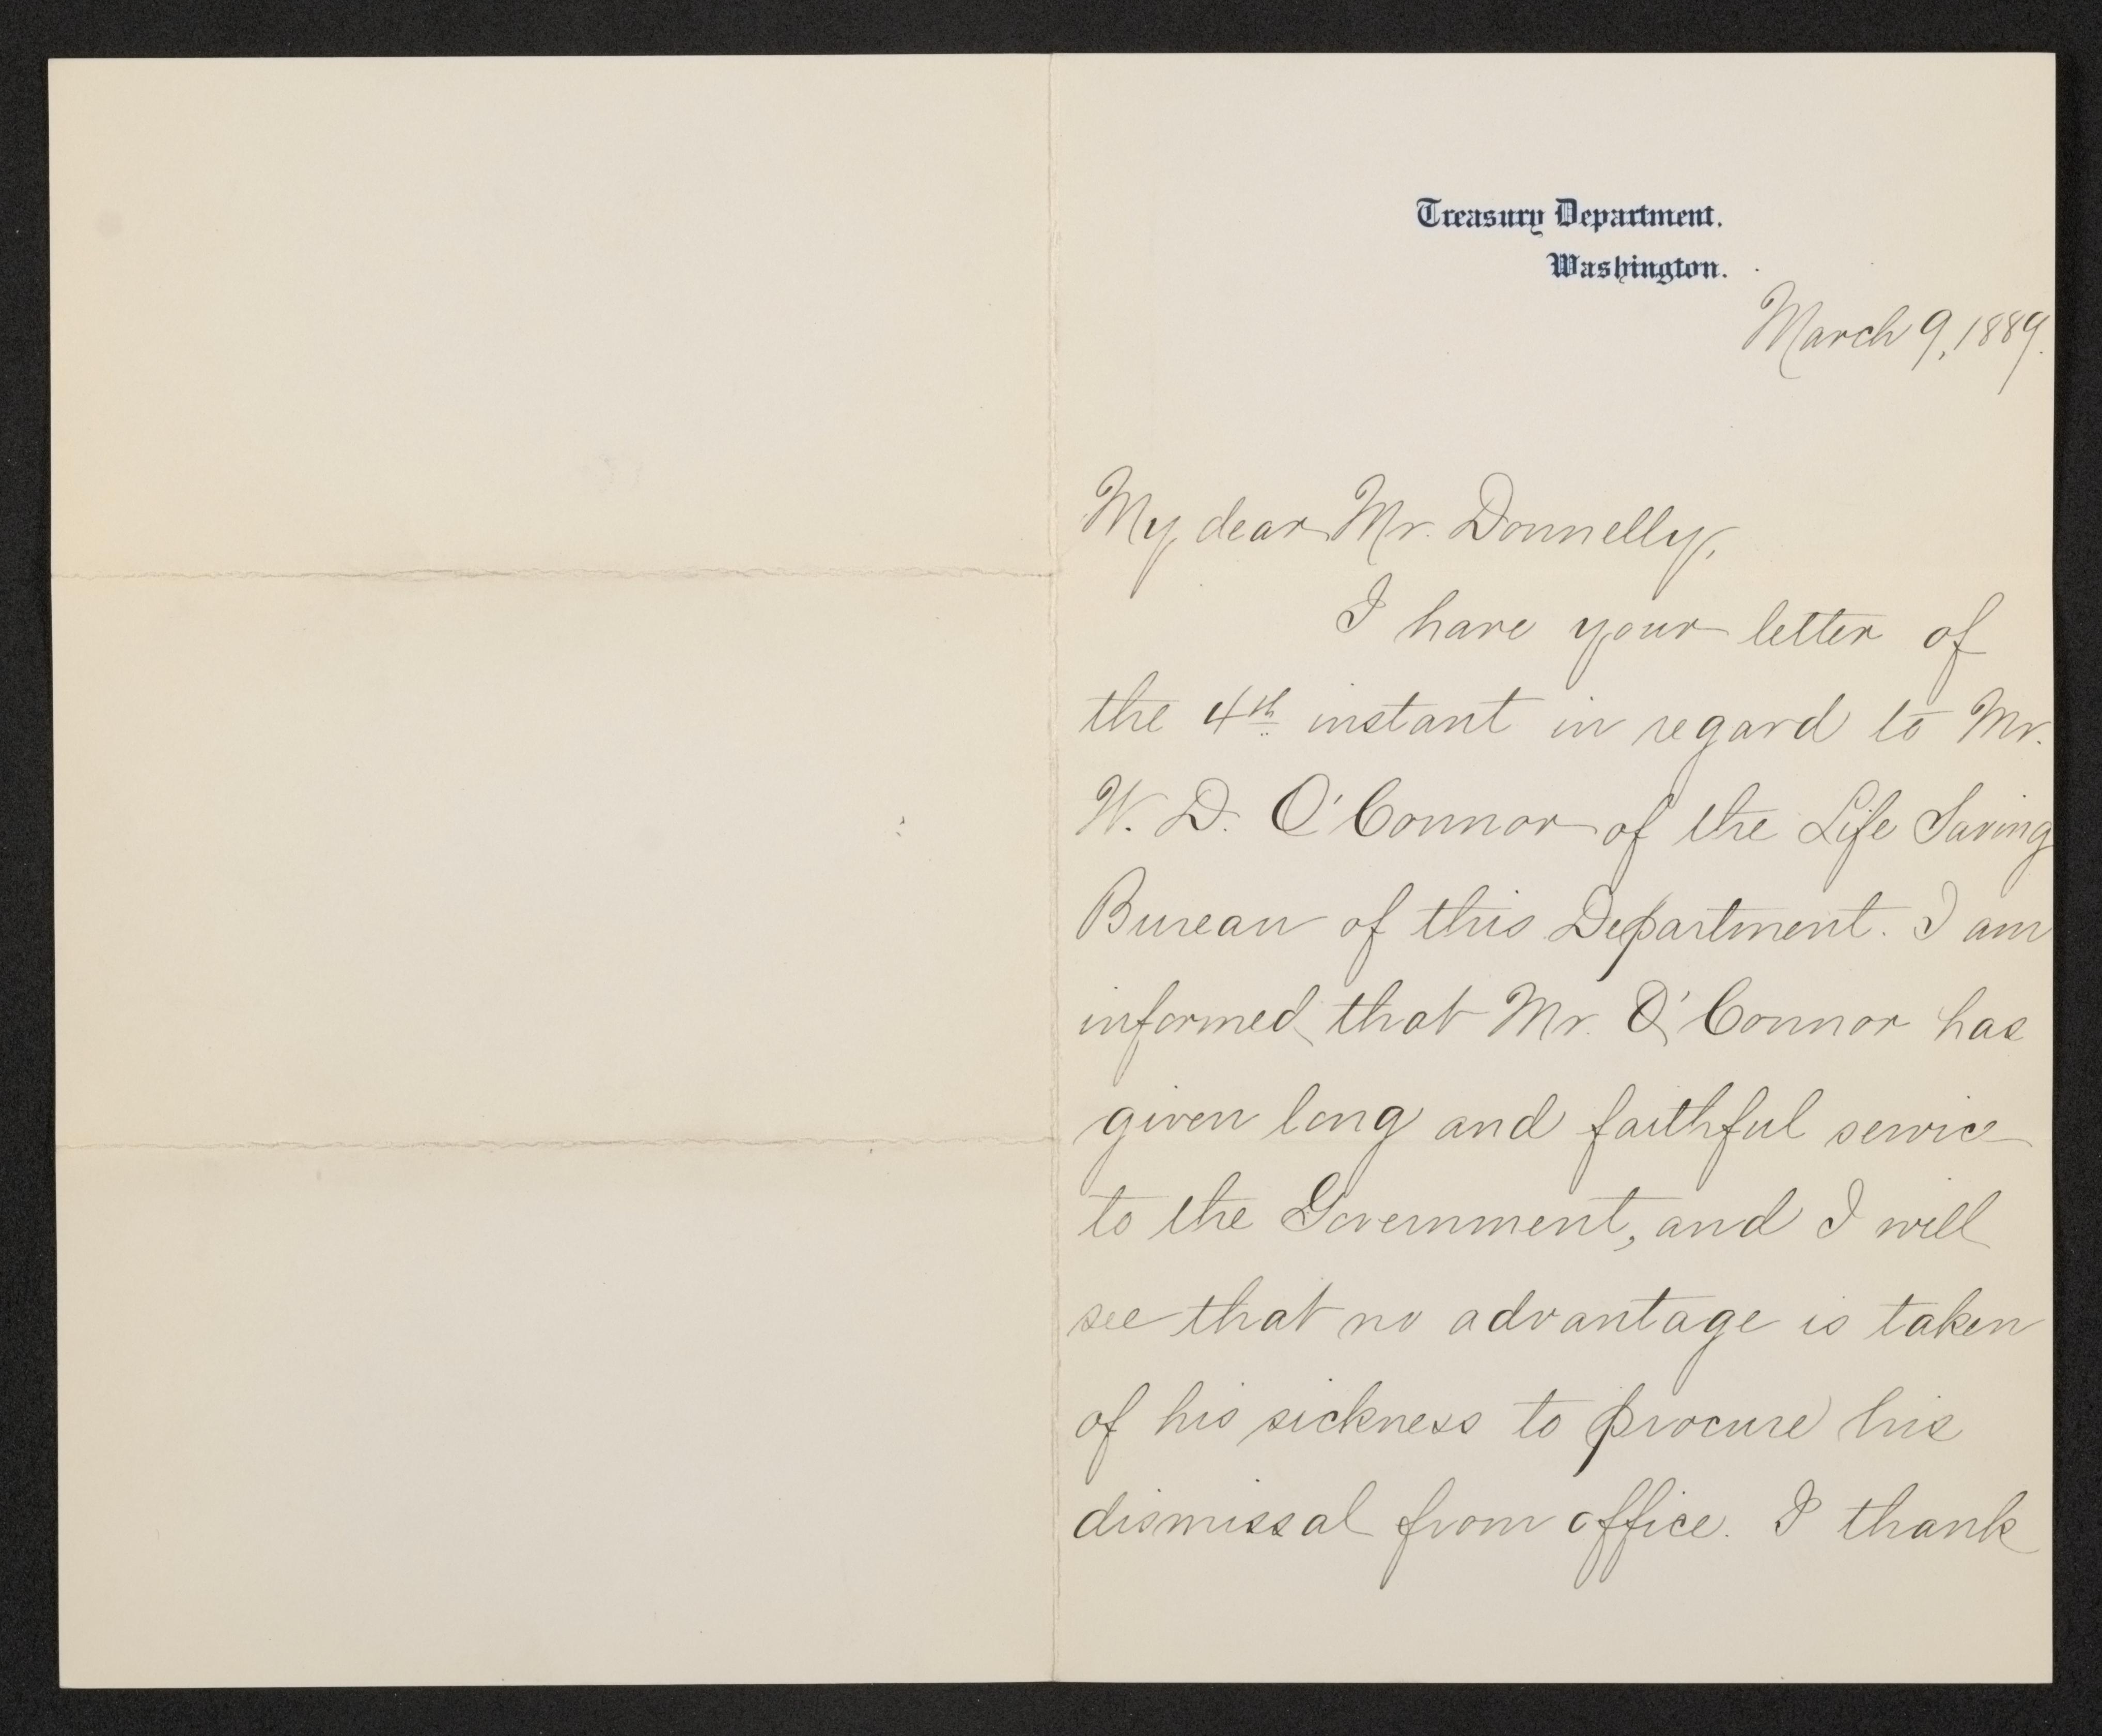 Treasury Department.
Washington.
March 9, 1889.
My dear Mr. Donnelly,
I have your letter of
the 4th instant in regard to Mr.
W. D. O'Connor of the Life Saving
Bureau of this Department. I am
informed that Mr. O'Connor has
given long and faithful service
to the Government, and I will
see that no advantage is taken
of his sickness to procure his
dismissal from office. I thank